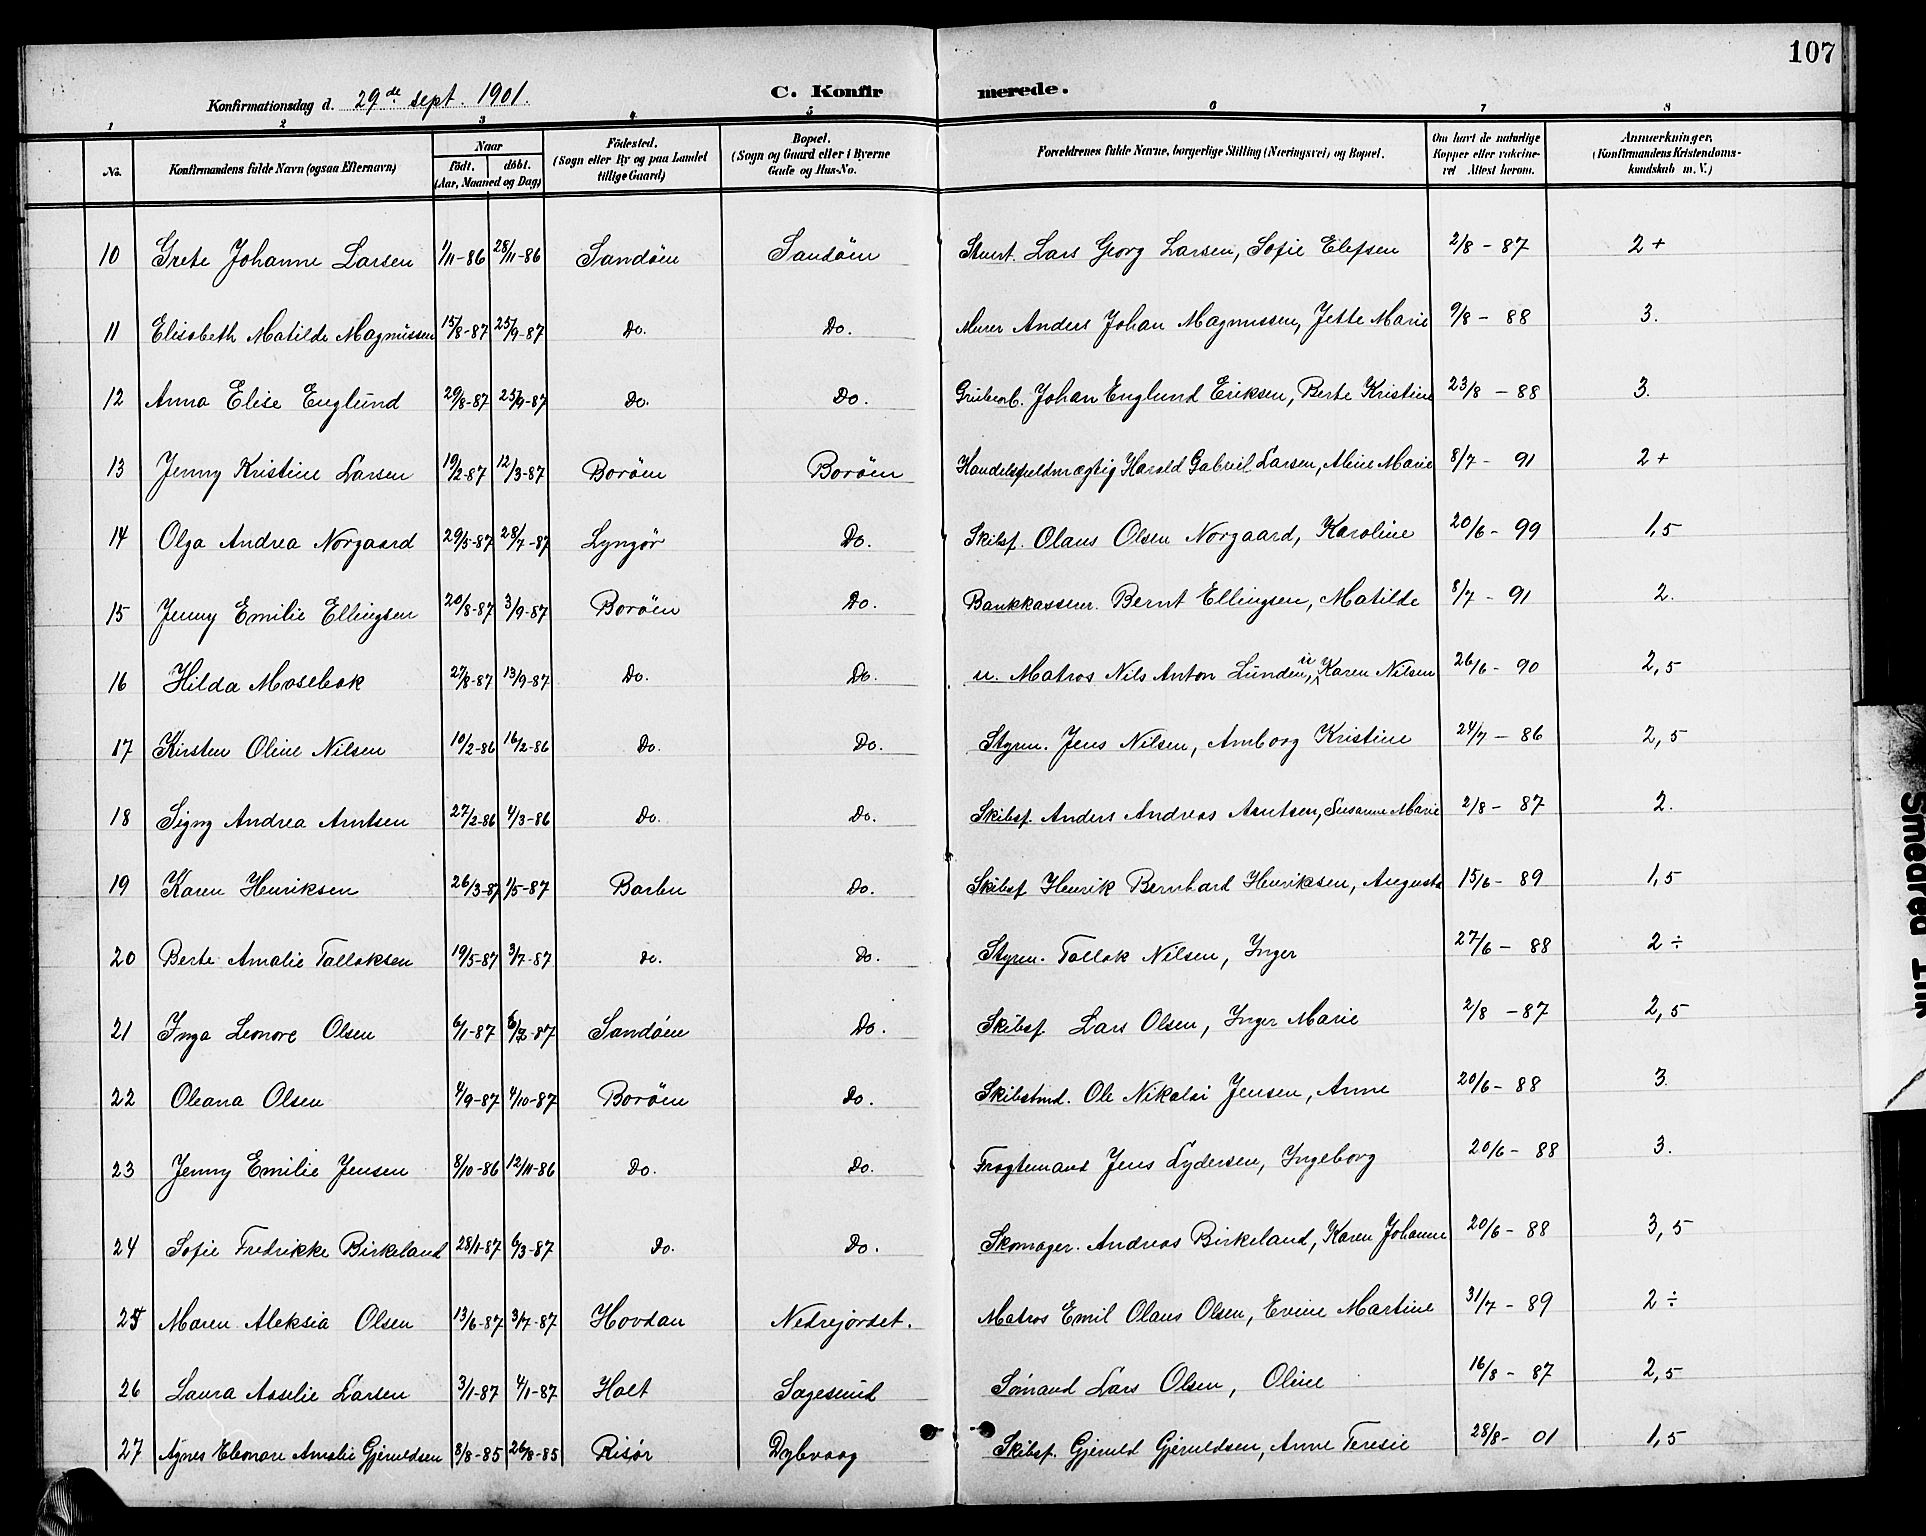 107
Konfirmationsdag d. 29de sept. 1901.
C. Konfirmerede.
1 2 3 4 5 6 7 8
No. Konfirmandens fulde Navn (ogsaa Efternavn) Naar født. døbt. (Aar, Maaned og Dag) Fødested. (Sogn eller By og paa Landet tillige Gaard) Bopæl. (Sogn og Gaard eller i Byerne Gade og Hus-No. Forældrenes fulde Navne, borgerlige Stilling (Næringsvei) og Bopæl. Om havt de naturlige Kopper eller vaccineret Attest herom. Anmærkninger, (Konfirmandens Kristendomskundskab m. V.)
10 Grete Johanne Larsen 1/11-86 28/11-86 Sandøen Sandøen Stuert. Lars Georg Larsen, Sofie Elefsen 2/8-87 2+
11 Elisabeth Matilde Magnussen 15/8-87 25/9-87 Do. Do. Murer Anders Johan Magnussen, Jette Marie 9/8-88 3.
12 Anna Elise Englund 29/8-87 25/9-87 Do. Do. Grubearb. Johan Englund Eriksen, Berte Kristine 23/8-88 3.
13 Jenny Kristine Larsen 19/2-87 12/3-87 Borøen Borøen Handelsfuldmægtig Harald Gabriel Larsen, Aline Marie 8/7-91 2+
14 Olga Andrea Norgaard 29/5-87 28/7-87 Lyngør Do. Skibsf. Olaus Olsen Norgaard, Karoline 20/6-99 1,5
15 Jenny Emilie Ellingsen 20/8-87 3/9-87 Borøen Do. Bankkasserer. Bernt Ellingsen, Matilde 8/7-91 2.
16 Hilda Mosebak 27/8-87 13/9-87 Do. Do. u. Matros Nils Anton Lunden, u Karen Nilsen 26/6-90 2,5
17 Kirsten Oline Nilsen 10/2-86 16/2-86 Do. Do. Styrm. Jens Nilsen, Amborg Kristine 24/7-86 2,5
18 Signy Andrea Arntsen 27/2-86 4/3-86 Do. Do. Skibsf. Anders Andreas Arntsen, Susanne Marie 2/8-87 2.
19 Karen Henriksen 26/3-87 1/5-87 Barbu Do. Skibsf Henrik Bernhard Henriksen, Augusta 15/6-89 1,5
20 Berte Amalie Talloksen 19/5-87 3/7-87 Do. Do. Styrm. Tallak Nilsen, Inger 27/6-88 2 ÷
21 Inga Leonore Olsen 6/1-87 6/2-87 Sandøen Do. Skibsf Lars Olsen, Inger Marie 2/8-87 2,5
22 Oleana Olsen 4/9-87 4/10-87 Borøen Do. Skibstmd. Ole Nikolai Jensen, Anne 20/6-88 3.
23 Jenny Emilie Jensen 8/10-86 12/11-86 Do. Do. Fragtemand Jens Lydersen, Ingeborg 20/6-88 3.
24 Sofie Fredrikke Birkeland 28/1-87 6/3-87 Do. Do. Skomager. Andreas Birkeland, Karen Johanne 20/6-88 3,5
25 Maren Aleksia Olsen 13/6-87 3/7-87 Hovdan Nedrejordet. Matros Emil Olaus Olsen, Evine Martine 31/7-89 2 ÷
26 Laura Asselie Larsen 3/1-87 4/1-87 Holt Sagesund Sømand Lars Olsen, Oline 16/8-87 2,5
27 Agnes Eleonore Amalie Gjeruldsen 8/8-85 26/8-85 Risør Dybvaag Skibsf. Gjeruld Gjeruldsen, Anne Teresie 28/8-01 1,5